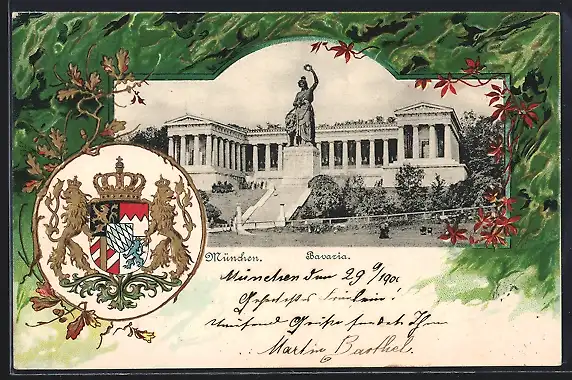 München. Bavaria.
München den 29 9/190
Geehrtestes Fräulein!
Tausend Grüße sendet Ihnen
Martin Barthel.